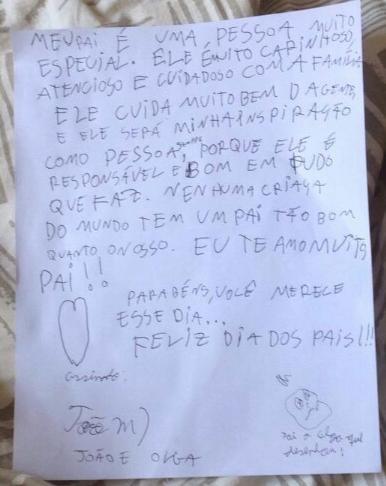 MEU PAI É UMA PESSOA MUITO
ESPECIAL. ELE É MUITO CARINHOSO,
ATENCIOSO E CUIDADOSO COM A FAMÍLIA
ELE CUIDA MUITO BEM DA GENTE,
E ELE SERÁ MINHA INSPIRAÇÃO
COMO PESSOA, SEMPRE PORQUE ELE É
RESPONSÁVEL E BOM EM TUDO
QUE FAZ. NENHUMA CRIAÇA
DO MUNDO TEM UM PAI TÃO BOM
QUANTO O NOSSO. EU TE AMO MUITO
PAI!!!
PARABÉNS, VOLÊ MERECE
ESSE DIA...
FELIZ DIA DOS PAIS!!!
assinado:
João M)
JOÃO E OLGA
foi a Olga que
desenhou!